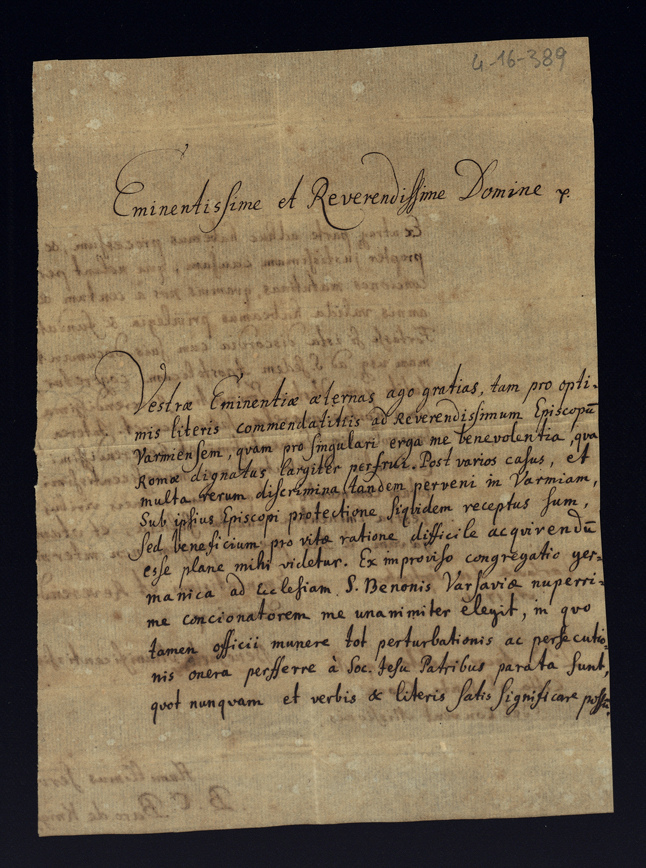 4-16-389
Eminentissime et Reverendissime Domine
Vestræ Eminentiæ æternas ago gratias, tam pro opti-
mis literis commendatitiis ad Reverendissimum Episcopū
Varmiensem, quam pro singulari erga me benevolentia, qua
Romæ dignatus largiter perfrui. Post varios casus, et
multa rerum discrimina tandem perveni in Varmiam,
Sub ipsius Episcopi protectione siquidem receptus sum,
sed beneficium pro vitæ ratione difficile acqvirendū
esse plane mihi videtur. Ex improviso congregatio ger-
manica ad Ecclesiam S. Benonis Varsaviæ nuperri-
me concionatorem me unanimiter elegit, in qvo
tamen officii munere tot perturbationis ac persecutio-
nis onera persferre à Soc. Jesu Patribus parata sunt,
qvot nunqvam et verbis & literis satis significare possū